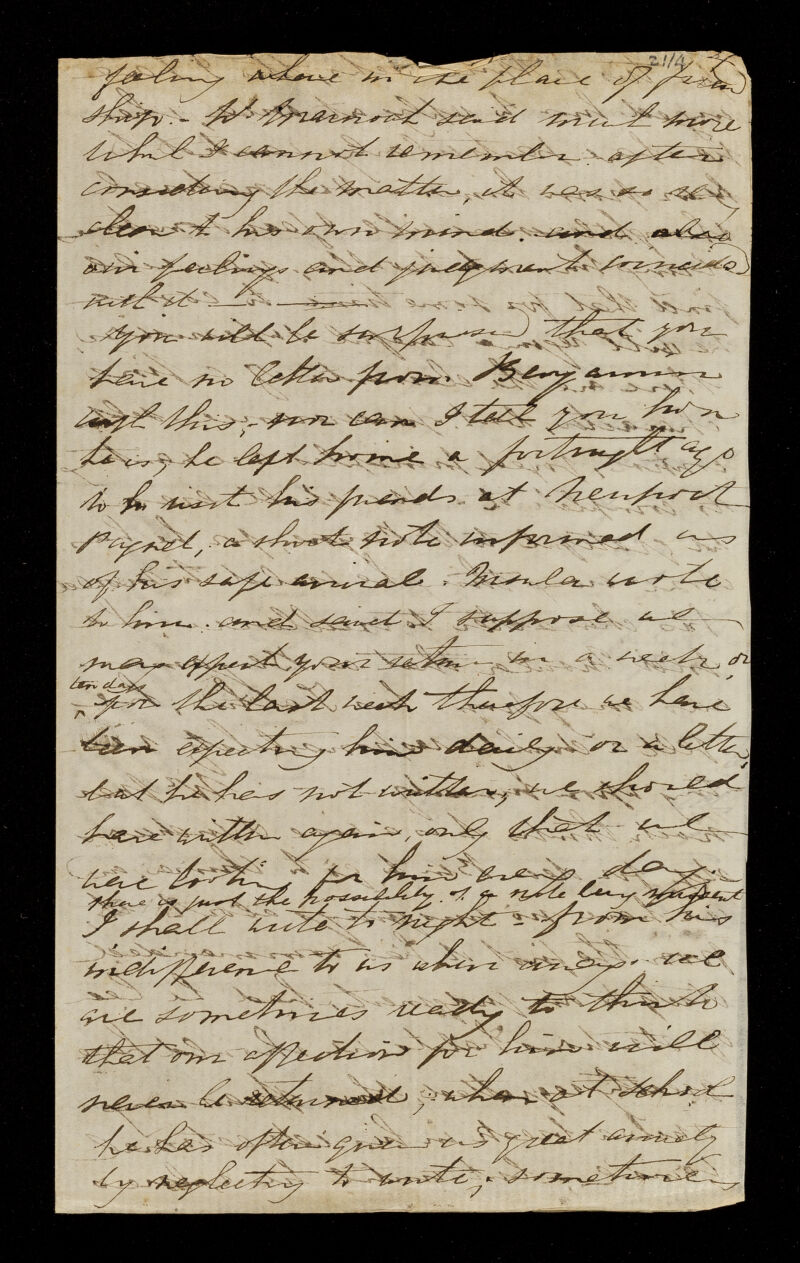 2114
feeling alone in the place of frien
ship. - Mr said much more
which I cannot remember. after
considering the matter, it was so very
clear to his own mind. and also
our feelings and judgment coincided
with it
You will be surprised that you
have no letter from Benjamin
with this; nor can I tell you how
he is, he left home a fortnight ago
to visit his friends at Newport
Pagnel, a short note informed us
of his safe arrival. wrote
to him. and said I suppose we
may expect your return in a week or
ten days
for the last week therefore we have
been expecting him daily or a letter,
but he has not written, we should
have written again, only that we
were looking for him every day
there is just the possibility of a note being missent
I shall write to night - from his
indifference to us when away. we
are sometimes ready to think
that our affection for him will
never be returned; when at school
he has often given us great anxiety
by neglecting to write; sometimes